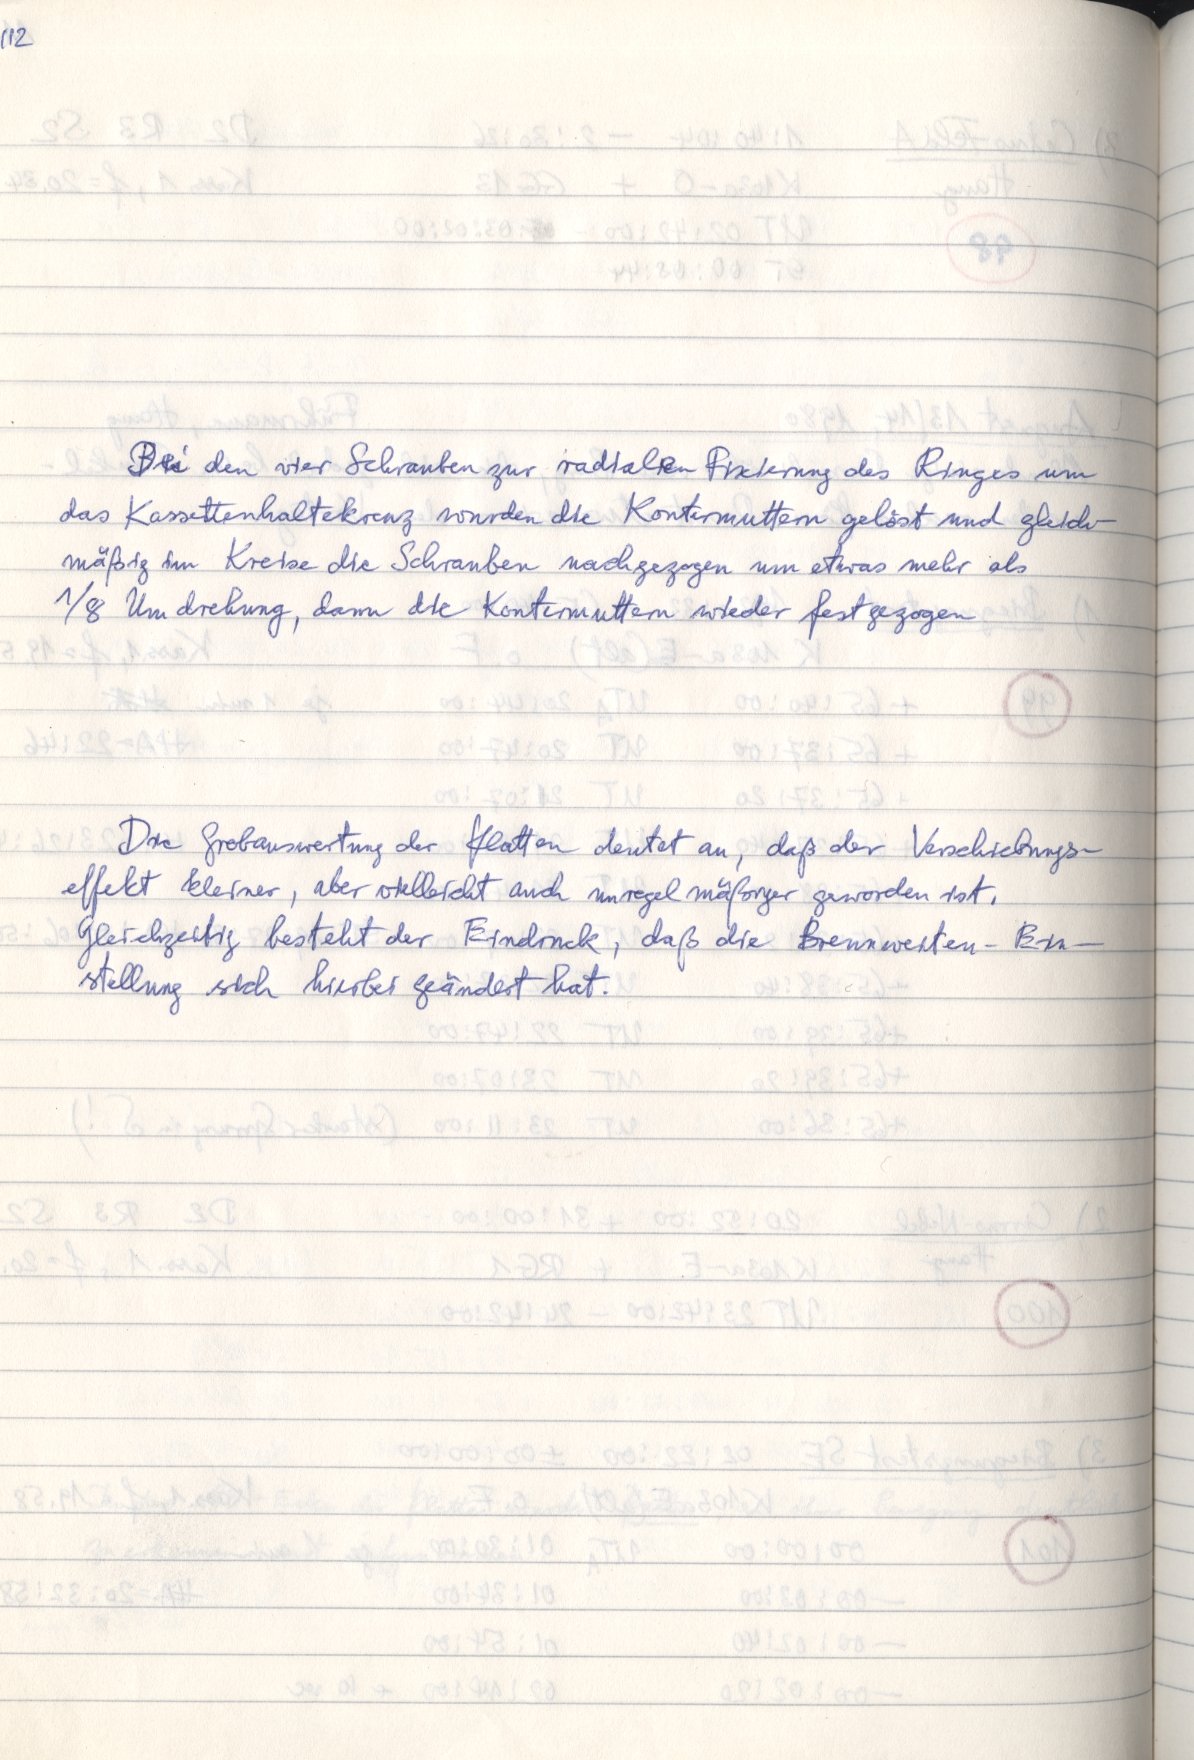 112
Bei den vier Schrauben zur radialen Fixierung des Ringes um
das Kassettenhaltekreuz wurden die Kontermuttern gelöst und gleich-
mäßig im Kreise die Schrauben nachgezogen um etwas mehr als
1/8 Umdrehung, dann die Kontermuttern wieder festgezogen
Die Grobauswertung der Platten deutet an, daß der Verschiebungs-
effekt kleiner, aber vielleicht auch unregelmäßiger geworden ist.
Gleichzeitig besteht der Eindruck, daß die Brennweiten-Ein-
stellung sich hierbei geändert hat.